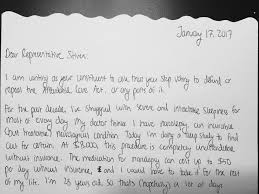 January 17, 2017
Dear Representative
I am writing as your constituent to ask that you stop voting to defund or
repeal the Affordable Care Act, or any part of it.
For the past decade, I've struggled with severe and intractable sleepiness for
most of every day. My doctor thinks I have narcolepsy, an incurable
but treatable neurological condition. Today I'm doing a sleep study to find
out for certain. At $8,000, this procedure is completely unaffordable
without insurance. The medication for narcolepsy can cost up to $50
per day without insurance, and I would have to take it for the rest
of my life. I'm 28 years old, so that's (hopefully) a lot of days